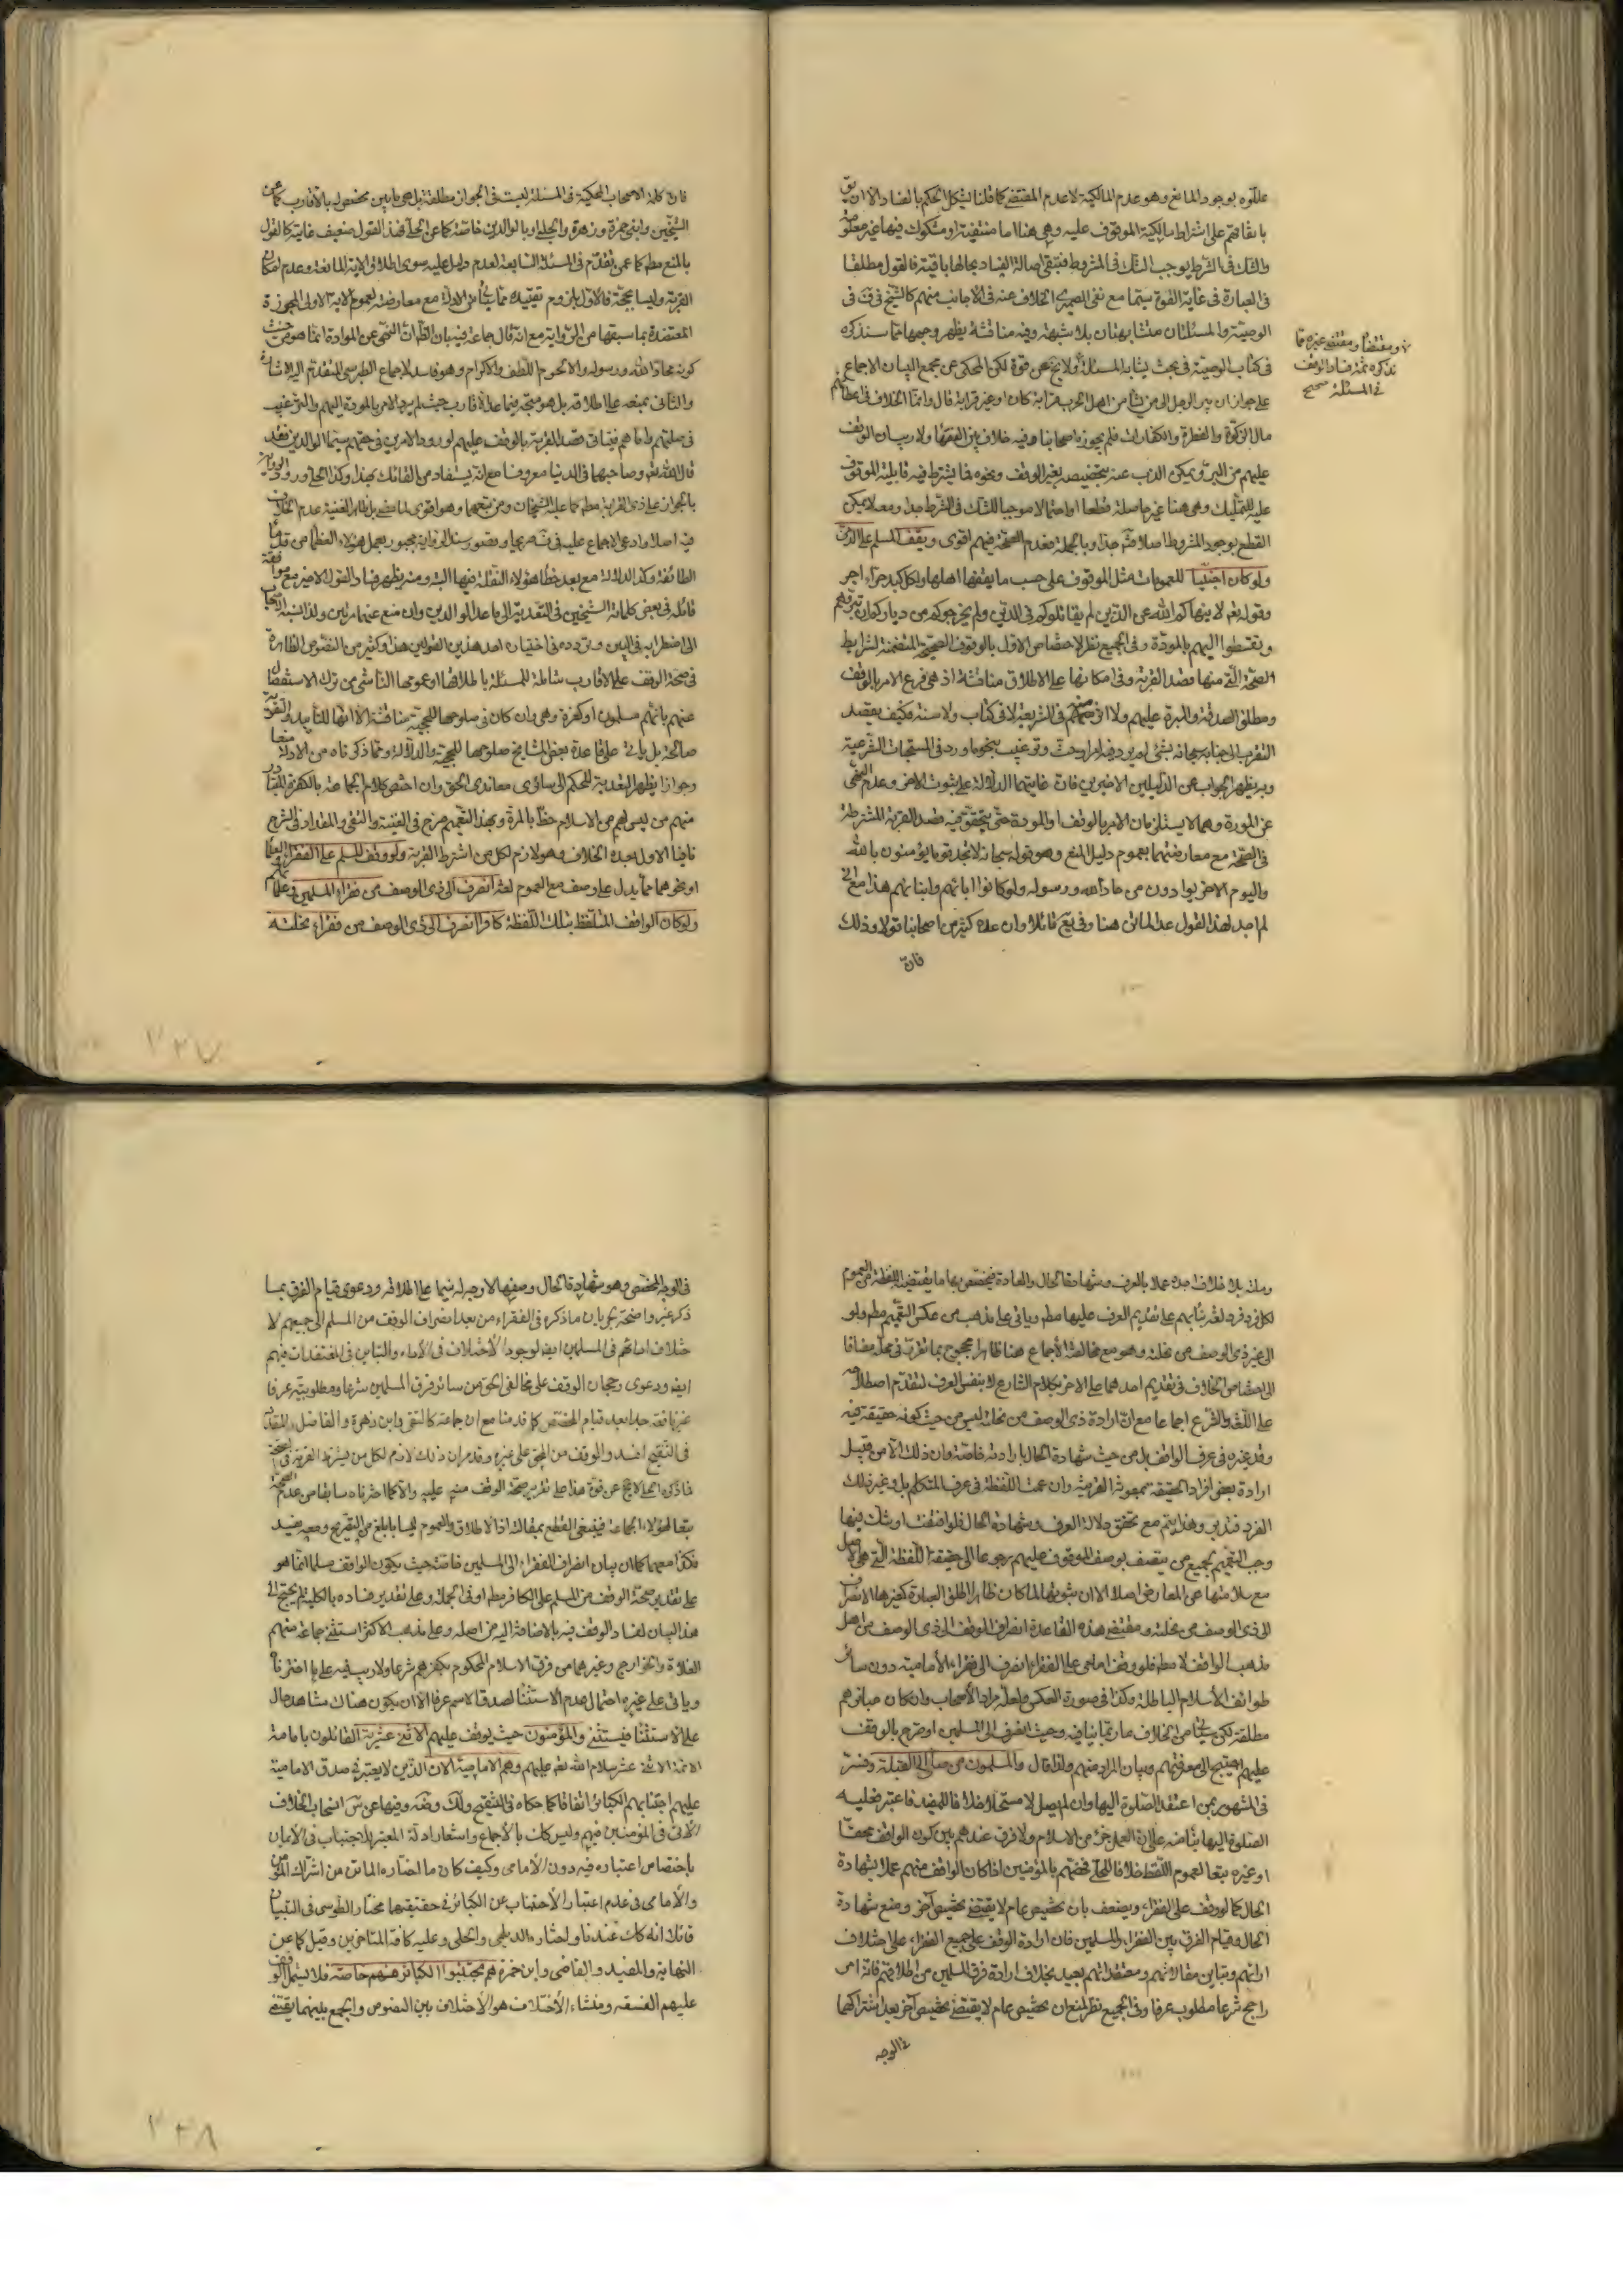 علّلوه بوجود المانع وهو عدم المالكية لا عدم المقتضي كما قلنا يشكل الحكم بالفساد الا ان يق
باتفاقهم على اشتراط مالكية الموقوف عليه وهي هنا اما منتفية او مشكوك فيها غير معلومة
والشك في الشرط يوجب الشك في المشروط فتبقى اصالة الفساد بحالها باقية فالقول مطلقا
في العبارة في غاية القوة سيما مع نفي الخلاف عنه في الأجانب منهم كالشيخ في
الوصية والمسئلتان متشابهتان بلا شبهة وفيه مناقشة يظهر وجهها مما سنذكره
في كتاب الوصية في بحث يشابه المسئلة ولا يخ عن قوة لكن المحكي عن مجمع البيان الاجماع
على جواز ان يبر الرجل الى من شاء من اهل الحرب قرابة كان او غير قرابة قال وانما الخلاف في اعطائهم
مال الزكوة والفطرة والكفارات فلم يجوزه اصحابنا وفيه خلاف بين الفقهاء ولا ريب ان الوقف
عليهم من البر ويمكن الذب عنه بتخصيصه بغير الوقف ونحوه مما يشترط فيه قابلية الموقوف
عليه للتمليك وهي هنا غير حاصلة قطعا او احتمالا موجبا للشك في الشرط جدا ومعه لا يمكن
القطع بوجود المشروط اصلا جدا وبالجملة فعدم الصحة فيهم اقوى ويقف المسلم على الذمي
ولو كان اجنبيا للعمومات مثل الموقوف على حسب ما يقفها اهلها ولكل كبد حراء اجر
وقوله تعالى لا ينهاكم الله عن الذين لم يقاتلوكم في الدين ولم يخرجوكم من دياركم ان تبروهم
وتقسطوا اليهم بالمودة وفي الجميع نظر لاختصاص الاول بالوقوف الصحيحة المتضمنة لشرايط
الصحة التي منها قصد القربة وفي امكانها على الاطلاق مناقشة اذ هي فرع الامر بالوقف
ومطلق الصدقة والمبرة عليهم ولا اثر منهم في الشريعة لا في كتاب ولا سنة فكيف يقصد
التقرب الى جنابه سبحانه بشئ لم يرد فيه امر وحث وترغيب بنحو ما ورد في المستحبات الشرعية
وبه يظهر الجواب عن الدليلين الاخيرين فان غايتهما الدلالة على ثبوت الاجر وعدم النهي
عن المودة وهما لا يستلزمان الامر بالوقف او المودة حتى يتحقق فيه قصد القربة المشترطة
في الصحة مع معارضتهما بعموم دليل المنع وهو قوله سبحانه لا تجد قوما يؤمنون بالله
واليوم الاخر يوادون من حاد الله ورسوله ولو كانوا اباءهم وابناءهم هذا مع اني
لم اجد لهذا القول عدا الماتن هنا وفي يع قائلا وان عده كثير من اصحابنا قولا وذلك
فان
ومقتضى غيره مما
نذكره ثمة فساد الوقف
في المسئلة صحيح
فان كلمة الاصحاب المحكية في المسئلة ليست في الجواز مطلقة بل هي ما بين مخصصة له بالاقارب كما عن
الشيخين وابني حمزة وزهرة والحلبي او بالوالدين خاصة كما عن الحلي فهذا القول ضعيف غايته كالقول
بالمنع مطلقا كما عمن تقدم في المسئلة السابقة لعدم دليل عليه سوى اطلاق الاية المانعة وعدم امكان
القربة وليسا بحجة فالاول بلزوم تقييده بما يأتي من الادلة مع معارضته لعموم الاية الاولى المجوزة
المعتضدة بما سبقها من الرواية مع انه قال جماعة فيه بان الظاهر ان النهي عن الموادة انما هو من حيث
كونه محادا لله ورسوله والا لحرم اللطف والاكرام وهو فاسد لاجماع الطبرسي المتقدم اليه الاشارة
والثاني بمنعه على اطلاقه بل هو متجه فيما عدا الاقارب حيث لم يرد الامر بالمودة اليهم والترغيب
في صلتهم واما هم فيتأتى قصد القربة بالوقف عليهم لورود الامرين في حقهم سيما الوالدين فقد
قال الله تعالى وصاحبهما في الدنيا معروفا مع انه يستفاد من القائلين بهذا وكذا الحلي ورود الرواية
بالجواز على ذي القرابة مطلقا كما عليه الشيخان ومن تبعهما وهو اقوى لما مضى بل ظاهر الغنية عدم الخلاف
فيه اصلا وادعى الاجماع عليه في صريحا وقصور سند الرواية مجبور بعمل هؤلاء العظماء من قدماء
الطائفة وكذا الدلالة مع بعد خطأ هؤلاء النقلة فيها البتة ومنه يظهر فساد القول الاخير مع موافقة
قائله في بعض كلماته الشيخين في التعدية الى ما عدا الوالدين وان منع عنها مرتين ولذا نسبه الاصحاب
الى اضطراب في البين وتردده في اختيار احد هذين القولين هذا وكثير من النصوص الظاهرة
في صحة الوقف على الاقارب شاملة للمسئلة باطلاقها او عمومها الناشي من ترك الاستفصال
عنهم بانهم مسلمون او كفرة وهي وان كان في صلوحها للحجية مناقشة الا انها للتأييد والتقوية
صالحة بل يأتي على قاعدة بعض المشايخ صلوحها للحجية والدلالة ومما ذكرناه من الادلة منعا
وجوازا يظهر التعدية للحكم الى سائر معاندي الحق وان اختص كلام الجماعة بالكفرة المتبادر
منهم من ليس لهم من الاسلام حظا بالمرة وبهذا التعميم صرح في الغنية والتقي والمقداد في الشرح
نافيا الاول بعده الخلاف وهو لازم لكل من اشترط القربة ولو وقف المسلم على الفقراء او العلماء
او نحوهما مما يدل على وصف مع العموم لغة انصرف الى ذي الوصف من فقراء المسلمين وعلمائهم
ولو كان الواقف المتلفظ بتلك اللفظة كافرا انصرف الى ذي الوصف من فقراء نحلته
وملته بلا خلاف اجده عملا بالعرف وشهادة الحال والعادة فيخصص بها ما يقتضيه اللفظة من العموم
لكل فرد فرد لغة بنائهم على تقديم العرف عليها مطلقا ويأتي على مذهب من عكس التعميم مطلقا ولو
الى غير ذي الوصف من نحلته وهو مع مخالفته الأجماع هنا ظاهرا محجوج بما تقرر في محله مضافا
الى اختصاص الخلاف في تقديم احدهما على الاخر بكلام الشارع لا بنفس العرف لتقدم اصطلاحه
على اللغة والشرع اجماعا مع ان ارادة ذي الوصف من نحلته ليس من حيث كونه حقيقة فيه
وفي غيره في عرف الواقف بل من حيث شهادة الحال بارادته خاصة وان ذلك الا من قبيل
ارادة بعض افراد الحقيقة بمعونة القرينة وان عمت اللفظة في عرف المتكلم بل وغير ذلك
الفرد فتدبر وهذا يتم مع تحقق دلالة العرف وشهادة الحال فلو انتفت او شك فيها
وجب التعميم لجميع من يتصف بوصف الموقوف عليهم رجوعا الى حقيقة اللفظة التي هي الاصل
مع سلامتها عن المعارض اصلا الا ان ثبوتها لما كان ظاهرا اطلق العبارة كغيرها الانصراف
الى ذي الوصف من نحلته ومقتضى هذه القاعدة انصراف الوقف الى ذي الوصف من اهل
مذهب الواقف لا مطلقا فلو وقف امامي على الفقراء انصرف الى فقراء الأمامية دون سائر
طوائف الأسلام الباطلة وكذا في صورة العكس ولعله مراد الأصحاب وان كان عبائرهم
مطلقة لكن سيأتي من الخلاف عبارة مما ينافيه وحيث انصرف الى المسلمين او صرح بالوقف
عليهم احتيج الى معرفتهم وبيان المراد منهم ولذا قال والمسلمون من صلى الى القبلة وفسر
في المشهور بمن اعتقد الصلوة اليها وان لم يصل لا مستحلا خلافا للمفيد فاعتبر فعلية
الصلوة اليها بناء منه على ان العمل جزء من الاسلام ولا فرق عندهم بين كون الواقف محقا
او غيره تبعا لعموم اللفظ خلافا للحلي فخصهم بالمؤمنين اذا كان الواقف منهم عملا بشهادة
الحال كما لو وقف على الفقراء ويضعف بان تخصيص عام لا يقتضي تخصيص آخر ومنع شهادة
الحال وقيام الفرق بين الفقراء والمسلمين فان ارادة الوقف على جميع الفقراء على اختلاف
ارائهم وتباين مقالاتهم ومعتقداتهم بعيد بخلاف ارادة فرق المسلمين من اطلاقهم فانه امر
راجح شرعا مطلوب عرفا وفي الجميع نظر لمنع ان تخصيص عام لا يقتضي تخصيص آخر بعد اشتراكهما
في الوجه
في الوجه المخصص وهو شهادة الحال وضعفها لا وجه له سيما على اطلاقه ودعوى قيام الفرق بما
ذكر غير واضحة لجريان ما ذكره في الفقراء من بعد انصراف الوقف من المسلم الى جميعهم لا
ختلاف ارائهم في المسلمين ايضا لوجود الأختلاف في الأراء والتباين في المعتقدات فيهم
ايضا ودعوى رجحان الوقف على مخالفي الحق من سائر فرق المسلمين شرعا ومطلوبيته عرفا
غير نافعة جدا بعد قيام المخصص كما قدمنا مع ان جماعة كالتقي وابن زهرة والفاضل المقداد
في التنقيح افسدوا الوقف من المحق على غيره وقد مر ان ذلك لازم لكل من يشترط القربة في الصحة
فما ذكره الحلي لا يخ عن قوة هذا على تقدير صحة الوقف منهم عليهم والا كما اخترناه سابقا من عدم الصحة
تبعا لهؤلاء الجماعة فينبغي القطع بمقالته اذ الاطلاق والعموم ليسا بابلغ من التصريح ومعه يفسد
فكذا معهما كما ان بيان انصراف الفقراء الى المسلمين خاصة حيث يكون الواقف مسلما انما هو
على تقدير صحة الوقف من المسلم على الكافر مطلقا او في الجملة وعلى تقدير فساده بالكلية لم يحتج الى
هذا البيان لفساد الوقف فيه بالاضافة اليه من اصله وعلى مذهب الاكثر استثنى جماعة منهم
الغلاة والخوارج وغيرهما من فرق الاسلام المحكوم بكفرهم شرعا ولا ريب فيه على ما اخترناه
ويأتي على غيره احتمال عدم الاستثناء لصدق الاسم عرفا الا ان يكون هناك شاهد حال
على الاستثناء فيستثنى والمؤمنون حيث يوقف عليهم الاثنى عشرية القائلون بامامة
الائمة الاثنى عشر سلام الله تعالى عليهم وهم الامامية الان الذين لا يعتبر في صدق الامامية
عليهم اجتنابهم الكبائر اتفاقا كما حكاه في التنقيح ولك وضه وفيها عن س انسحاب الخلاف
الآتي في المؤمنين فيهم وليس كذلك بالأجماع واستشعار ادلة المعتبر للاجتناب في الأيمان
باختصاص اعتباره فيه دون الأمامي وكيف كان ما اختاره الماتن من اشتراك المؤمن
والأمامي في عدم اعتبار الأجتناب عن الكبائر في حقيقتهما مختار الطوسي في التبيان
قائلا انه كان عندنا واختاره الديلمي والحلي وعليه كافة المتأخرين وقيل كما عن
النهاية والمفيد والقاضي وابن حمزة هم مجتنبوا الكبائر منهم خاصة فلا يشمل الوقف
عليهم الفسقة ومنشاء الأختلاف هو الأختلاف بين النصوص والجمع بينهما يقتضي
٣٢٧
٣٢٨